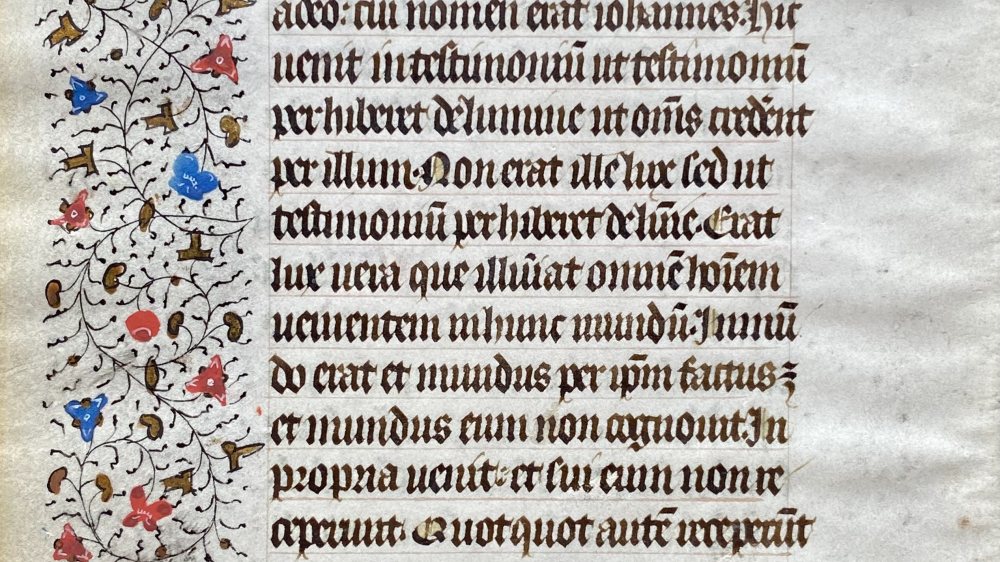 a deo: cui nomen erat iohannes. Hic
uenit in testimoniū ut testimoniū
perhiberet de lumine ut om̄s crederēt
per illum. Non erat ille lux sed ut
testimoniū perhiberet de lum̄e. Erat
lux uera que illūiat omnē hoīem
uenientem in hunc mundū. In mū
do erat et mundus per ip̄m factus ⁊
et mundus eum non cognouit. In
propria uenit: et sui eum non re
ceperunt. Quotquot autē receperūt